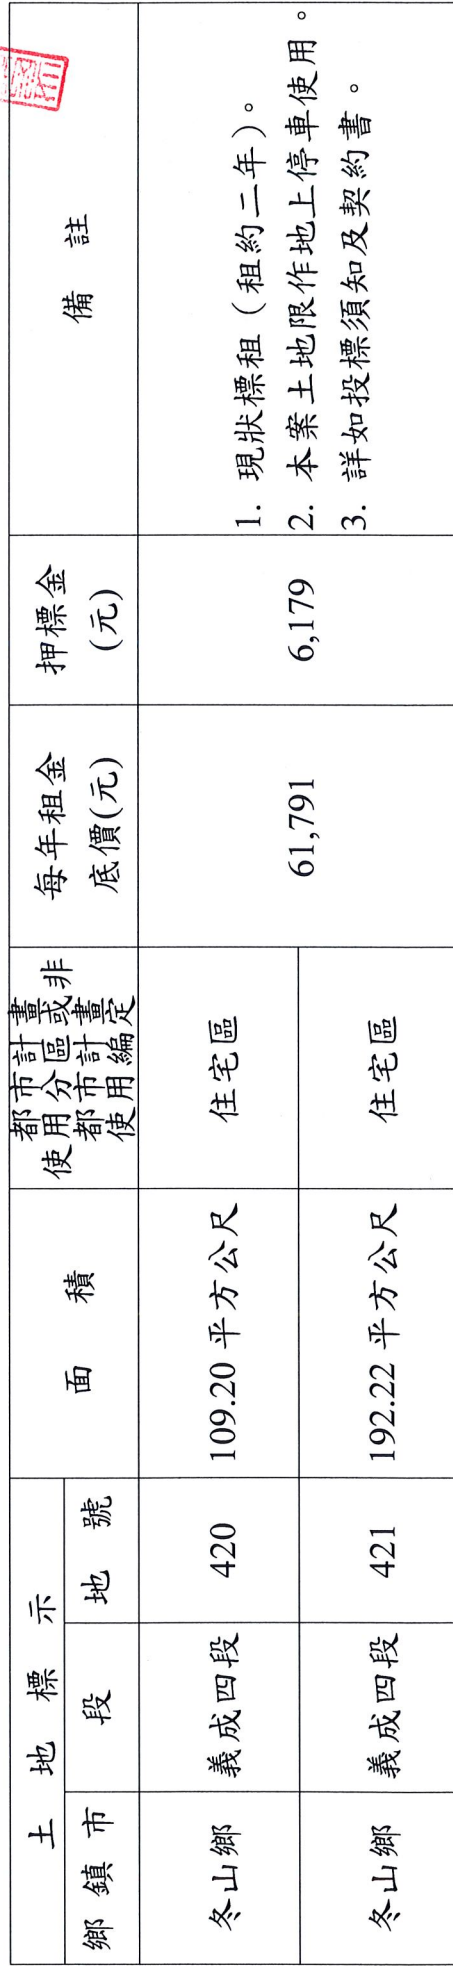 土地標示
鄉鎮市
段
地號
面積
都市計畫
使用分區或非
都市計畫
使用編定
每年租金
底價(元)
押標金
(元)
備註
冬山鄉
義成四段
420
109.20 平方公尺
住宅區
61,791
6,179
1. 現狀標租（租約二年）。
2. 本案土地限作地上停車使用。
3. 詳如投標須知及契約書。
冬山鄉
義成四段
421
192.22 平方公尺
住宅區